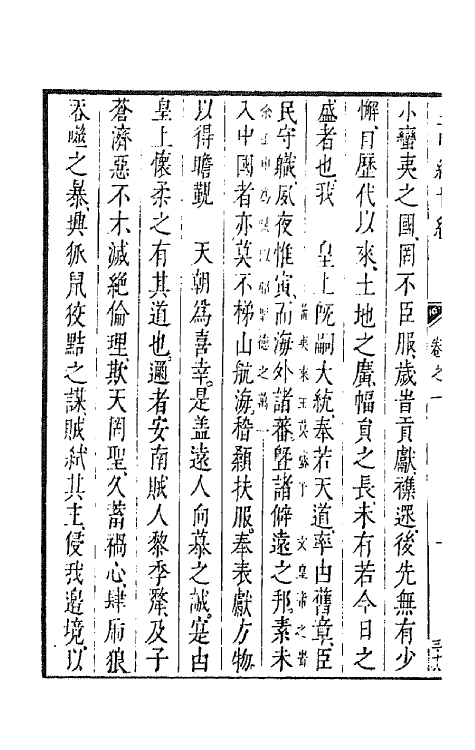 小蠻夷之國罔不臣服歲皆貢獻襍遝後先無有少
懈曰歷代以來土地之廣幅員之長未有若今日之
盛者也我 皇上既嗣大統奉若天道率由舊章臣
民守職夙夜惟寅而海外諸蕃曁諸僻遠之邦素未
入中國者亦莫不梯山航海稽顙扶服奉表獻方物
以得瞻覲 天朝為喜幸是盖遠人向慕之誠寔由
皇上懷柔之有其道也邇者安南賊人黎季犛及子
蒼濟惡不木滅絶倫理欺天罔聖久蓄禍心肆厲狼
吞噬之暴典狐鼠狡黠之謀賊弑其主侵我邊境以
卷之一